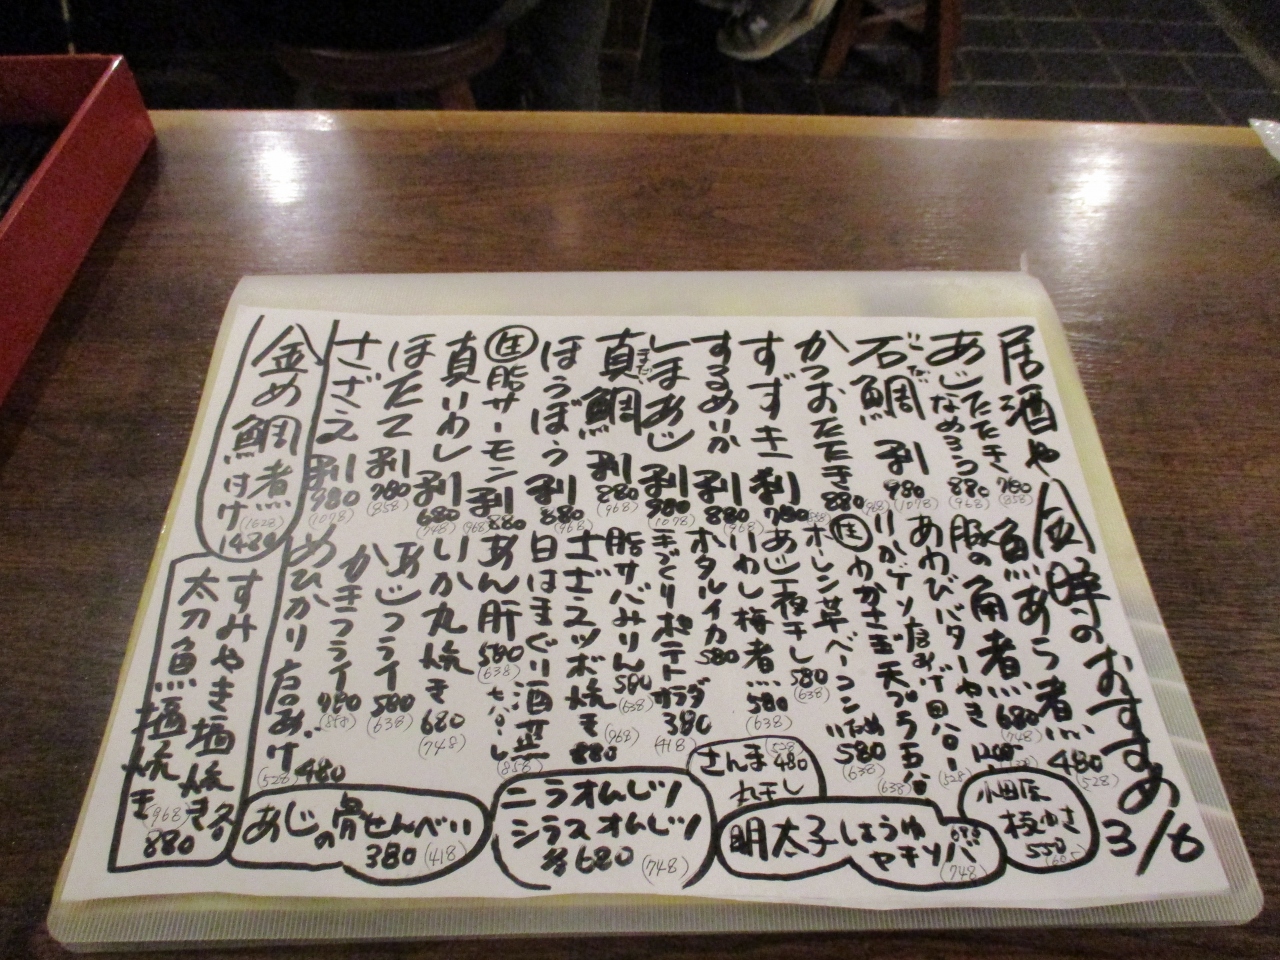 居酒や 金時のおすすめ 3/6
あじたたき 780 (858)
なめろう 880 (968)
石鯛 刺 980 (1078)
かつおたたき 880 (968)
すずき 刺 780
するめいか 刺 880 (968)
しまあじ 刺 980 (1078)
真鯛 刺 880 (968)
ほうぼう 刺 880 (968)
生 脂サーモン 刺 880 (968)
真いわし 刺 680 (748)
ほたて 刺 780 (858)
さざえ 刺 980 (1078)
金め鯛煮つけ 1480 (1628)
魚あら煮 480 (528)
豚の角煮 680 (748)
あわびバターやき
いかゲソ唐あげ 480 (528)
生 わかさぎ天プラ 580 (638)
ホーレン草ベーコンいため 580 (638)
あじ一夜干し 580 (638)
いわし梅煮 580 (638)
ホタルイカ 580
手づくりポテトサラダ 380 (418)
脂サバみりん 580 (638)
さざえツボ焼き 880 (968)
白はまぐり酒蒸し (858)
あん肝 580 (638)
いか丸焼き 680 (748)
あじフライ 580 (638)
かきフライ 780 (858)
めひかり唐あげ 480 (528)
すみやき塩焼き各
太刀魚塩焼き 880 (968)
小田原板わさ 550 (605)
明太子しょうゆヤキソバ 680 (748)
さんま丸干し 480 (528)
ニラオムレツ
シラスオムレツ
各680 (748)
あじの骨せんべい 380 (418)